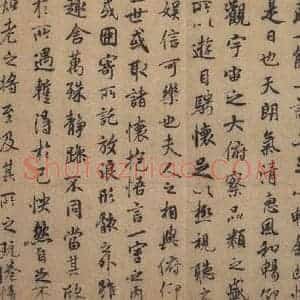 是日也天朗氣清惠風和暢仰
觀宇宙之大俯察品類之盛
所以遊目騁懷足以極視聽之
娛信可樂也夫人之相與俯仰
一世或取諸懷抱悟言一室之內
或因寄所託放浪形骸之外雖
趣舍萬殊靜躁不同當其欣
於所遇暫得於己怏然自足不
知老之將至及其所之既惓情